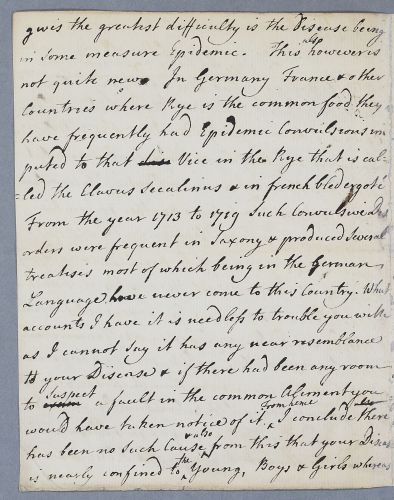 gives the greatest difficulty is the Disease being
in some measure Epidemic. This also however is
not quite new. In Germany France & other
Countries where Rye is the common food they
have frequently had Epidemic Convulsions im
puted to that Vice in the Rye that is cal-
=led the Clavus secalinus & in french bled ergoté
From the year 1713 to 1719 such Convulsive Dis
orders were frequent in Saxony & produced several
treatises most of which being in the German
Language have never come to this Country. What
accounts I have it is needless to trouble you with
as I cannot say it has any near resemblance
to your Disease & if there had been any room
to suspect a fault in the common Aliment you
would have taken notice of it. From hence I conclude there
has been no such Cause & also from this that your Diseas
is nearly confined to the Young, Boys & Girls whereas